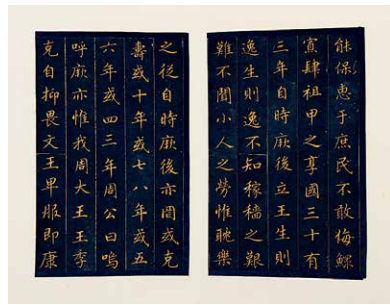 能保惠于庶民不敢侮鰥
寡肆祖甲之享國三十有
三年自時厥後立王生則
逸生則逸不知稼穡之艱
難不聞小人之勞惟耽樂
之從自時厥後亦罔或克
壽或十年或七八年或五
六年或四三年周公曰嗚
呼厥亦惟我周大王王季
克自抑畏文王卑服即康